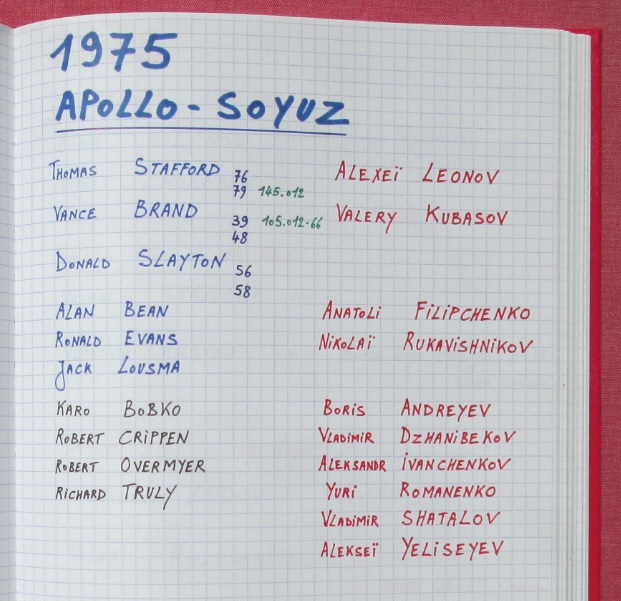 1975
APOLLO - SOYUZ
THOMAS STAFFORD 76 ALEXEÏ LEONOV
79 145.012
VANCE BRAND 39 105.012-66 VALERY KUBASOV
48
DONALD SLAYTON 56
58
ALAN BEAN ANATOLI FILIPCHENKO
RONALD EVANS NIKOLAÏ RUKAVISHNIKOV
JACK LOUSMA
KARO BOBKO BORIS ANDREYEV
ROBERT CRIPPEN VLADIMIR DZHANIBEKOV
ROBERT OVERMYER ALEKSANDR IVANCHENKOV
RICHARD TRULY YURI ROMANENKO
VLADIMIR SHATALOV
ALEKSEÏ YELISEYEV